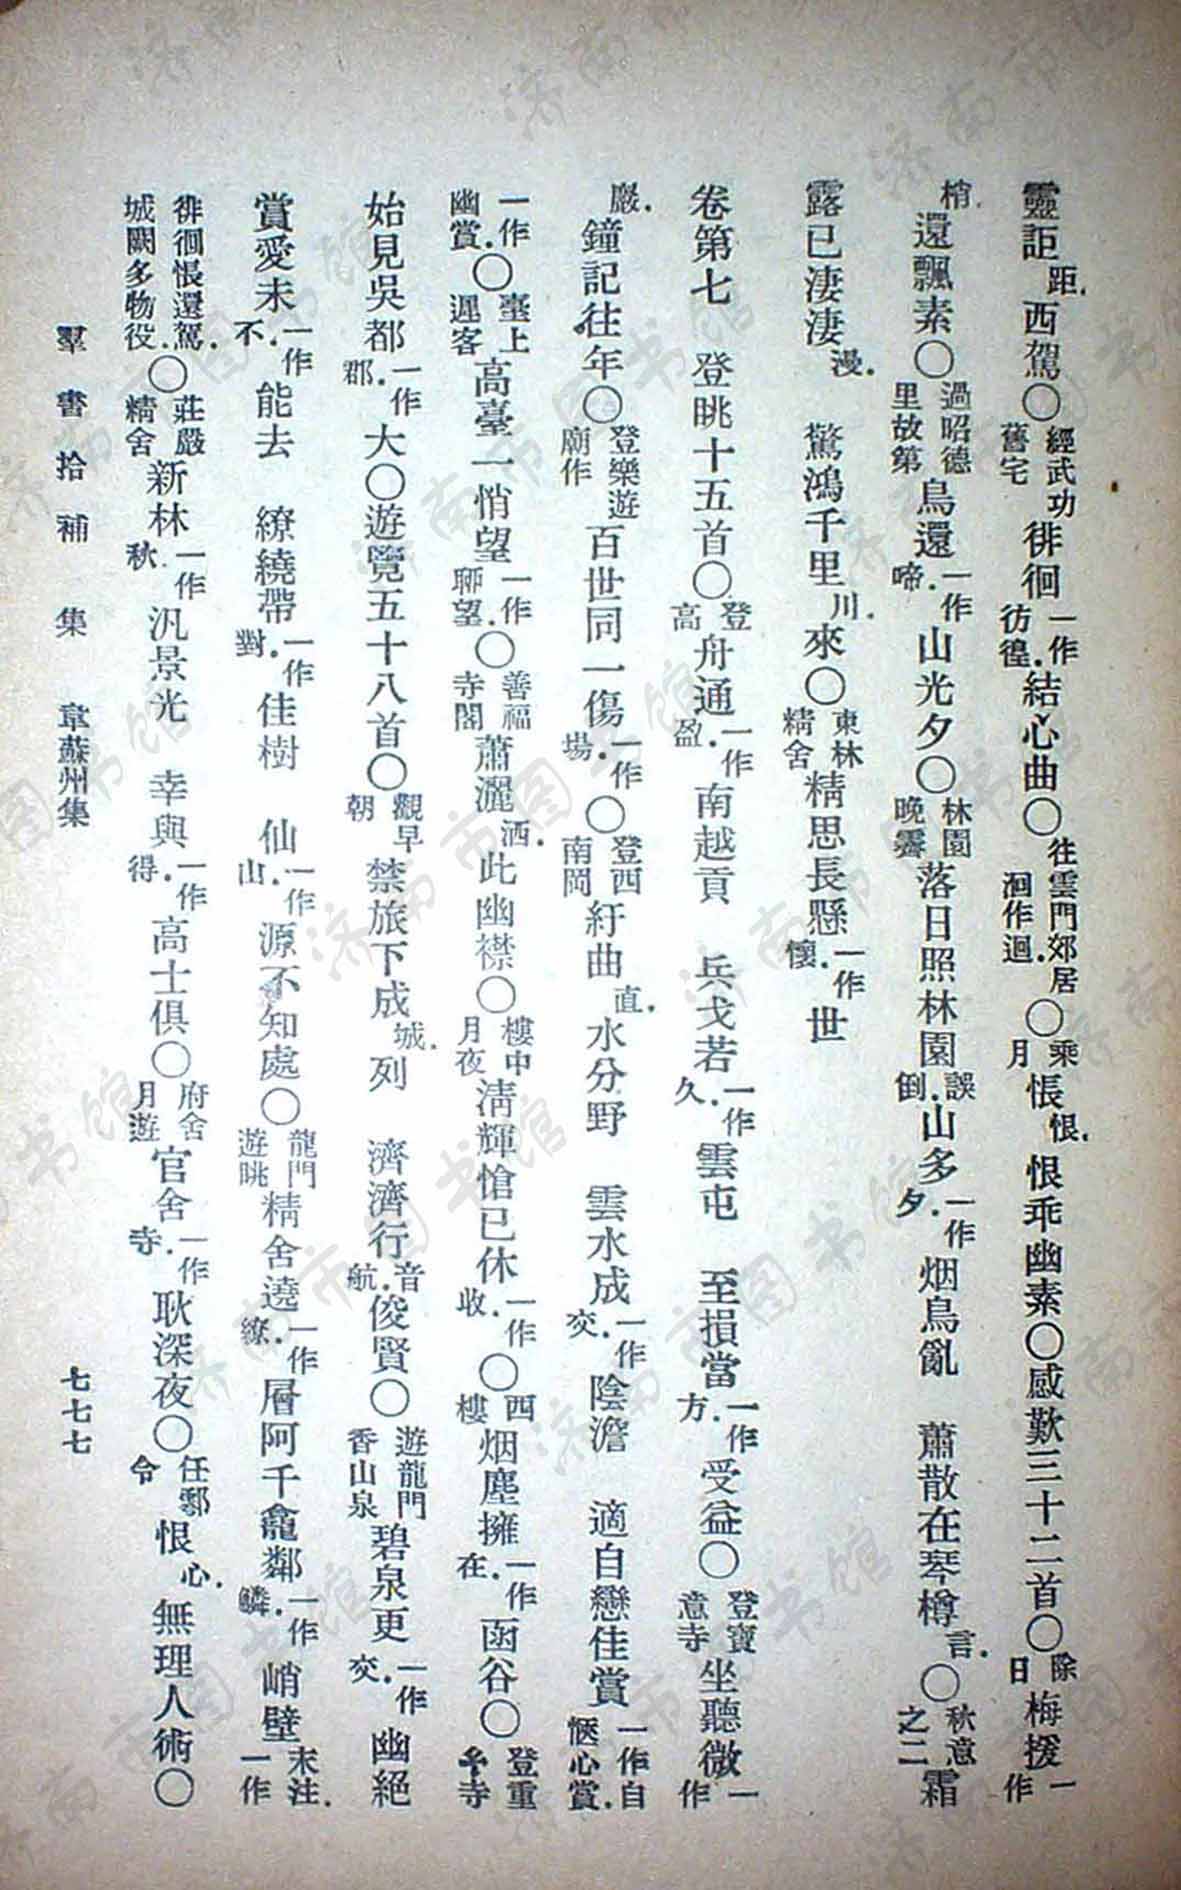 靈詎距.西駕〇經武功舊宅徘徊一作彷徨.結心曲〇往雲門郊居洄作迴.〇乘月悵恨.恨乖幽素〇感歎三十二首〇除日梅援一作
梢還飄素〇過昭德里故第鳥還一作啼.山光夕〇林園晚霽落日照林園誤倒.山多一作夕.烟鳥亂　蕭散在琴樽言.〇秋意之二霜
露已淒淒漫.　驚鴻千里川.來〇東林精舍精思長懸一作懷.世
卷第七　登眺十五首〇登高舟通一作盈.南越貢　兵戈若一作久.雲屯　至損當一作方.受益〇登寶意寺坐聽微一作
嚴.鐘記往年〇登樂遊廟作百世同一傷一作場.〇登西南岡紆曲直.水分野　雲水成一作交.陰澹　適自戀佳賞一作自愜心賞.
一作幽賞.〇臺上遲客高臺一悄望一作聊望.〇善福寺閣蕭灑洒.此幽襟〇樓中月夜清輝愴已休一作收.〇西樓烟塵擁一作在.函谷〇登重玄寺
始見吳都一作郡.大〇遊覽五十八首〇觀早朝禁旅下成城.列　濟濟行音航.俊賢〇遊龍門香山泉碧泉更一作交.幽絕
賞愛未一作不.能去　繚繞帶一作對.佳樹　仙一作山.源不知處〇龍門遊眺精舍遶一作繚.層阿千龕鄰一作鱗.峭壁末注.一作
徘徊悵還駕.城闕多物役.〇莊嚴精舍新林一作秋.汎景光　幸與一作得.高士俱〇府舍月遊官舍一作寺.耿深夜〇任鄠令恨心.無理人術〇
羣書拾補　集　韋蘇州集　七七七
济南市图书馆